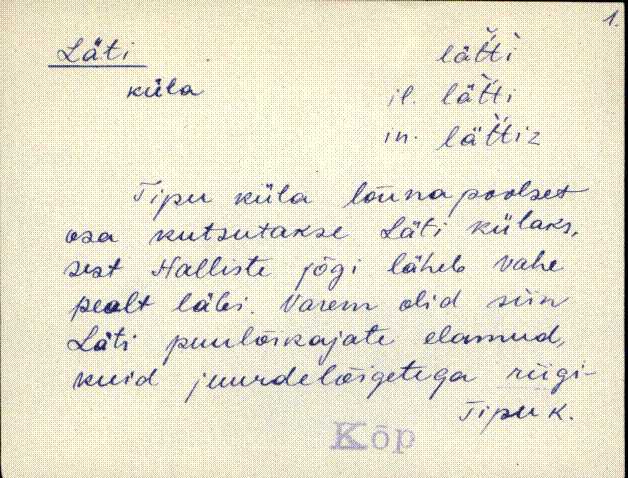 1.
Läti
küla
lätti
il. lätti
in. lättiz
Tipu küla lõunapoolset
osa kutsutakse Läti külaks,
sest Halliste jõgi läheb vahe
pealt läbi. Varem olid siin
Läti puulõikajate elamud,
kuid juurdelõigetega riigi-
Tipu k.
Kõp